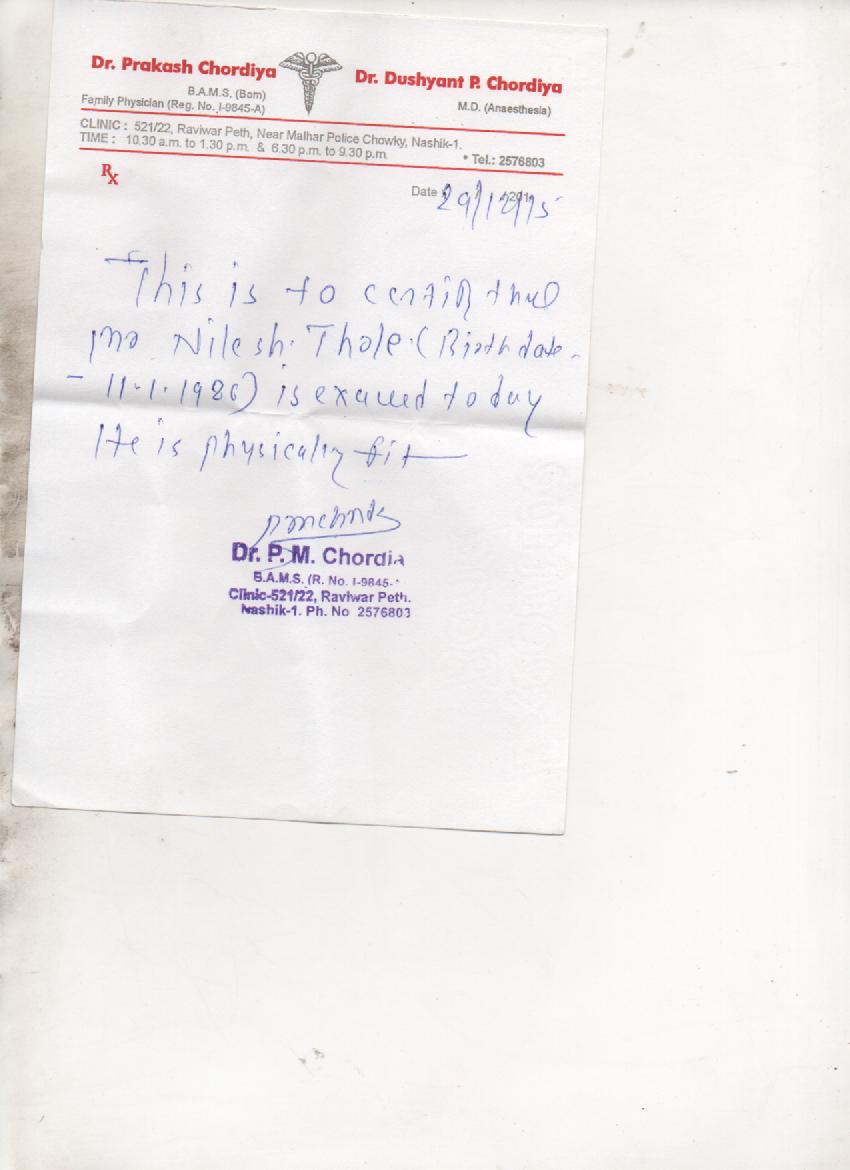 Dr. Prakash Chordiya
B.A.M.S. (Bom)
Family Physician (Reg. No. I-9845-A)
Dr. Dushyant P. Chordiya
M.D. (Anaesthesia)
CLINIC : 521/22, Raviwar Peth, Near Malhar Police Chowky, Nashik-1.
TIME : 10.30 a.m. to 1.30 p.m. & 6.30 p.m. to 9.30 p.m.
* Tel.: 2576803
Rx
Date 29/12/15
This is to certify that
Nilesh. Thole. (Birth date -
- 11.1.1986) is examed today
He is physically fit
Dr. P. M. Chordia
B.A.M.S. (R. No. I-9845-
Clinic-521/22, Raviwar Peth.
Nashik-1. Ph. No 2576803